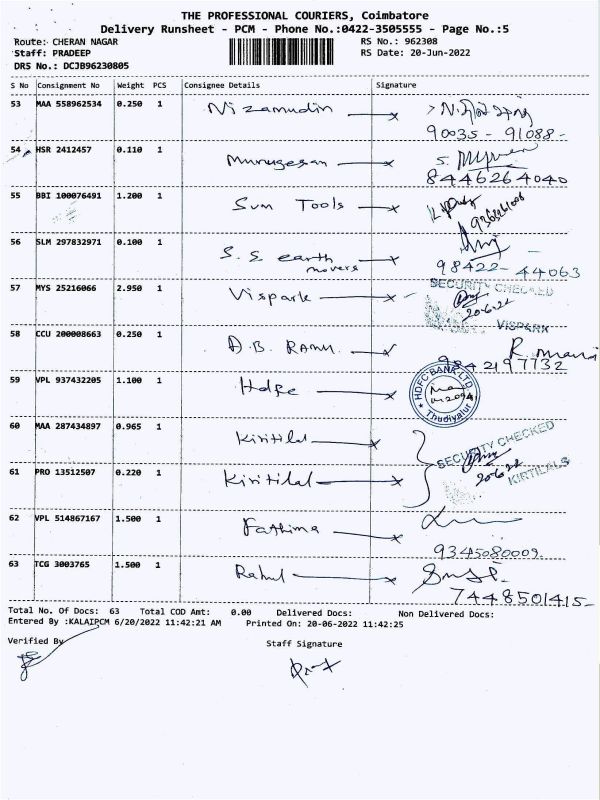 THE PROFESSIONAL COURIERS, Coimbatore
Delivery Runsheet - PCM - Phone No.:0422-3505555 - Page No.:5
Route: CHERAN NAGAR RS No.: 962308
Staff: PRADEEP RS Date: 20-Jun-2022
DRS No.: DCJB96230805
S No Consignment No Weight PCS Consignee Details Signature
53 MAA 558962534 0.250 1 Nizamudin
90035 - 91088 -
54 HSR 2412457 0.110 1 Murugesan
8446264040
55 BBI 100076491 1.200 1 Sum Tools
56 SLM 297832971 0.100 1 S.S earth movers
98422 - 44063
57 MYS 25216066 2.950 1 Vispark
SECURITY CHECKED
20-6-22
VISPARK
58 CCU 200008663 0.250 1 D.B. Ramu. R. mani
9842197732
59 VPL 937432205 1.100 1 Hdfc
HDFC BANK LTD
Thudiyalur
60 MAA 287434897 0.965 1 Kiritilal
SECURITY CHECKED
20-6-22
KIRTILALS
61 PRO 13512507 0.220 1 Kiritilal
62 VPL 514867167 1.500 1 Fathima
9345080009.
63 TCG 3003765 1.500 1 Rahul
7448501415-
Total No. Of Docs: 63 Total COD Amt: 0.00 Delivered Docs: Non Delivered Docs:
Entered By :KALAIPCM 6/20/2022 11:42:21 AM Printed On: 20-06-2022 11:42:25
Verified By Staff Signature